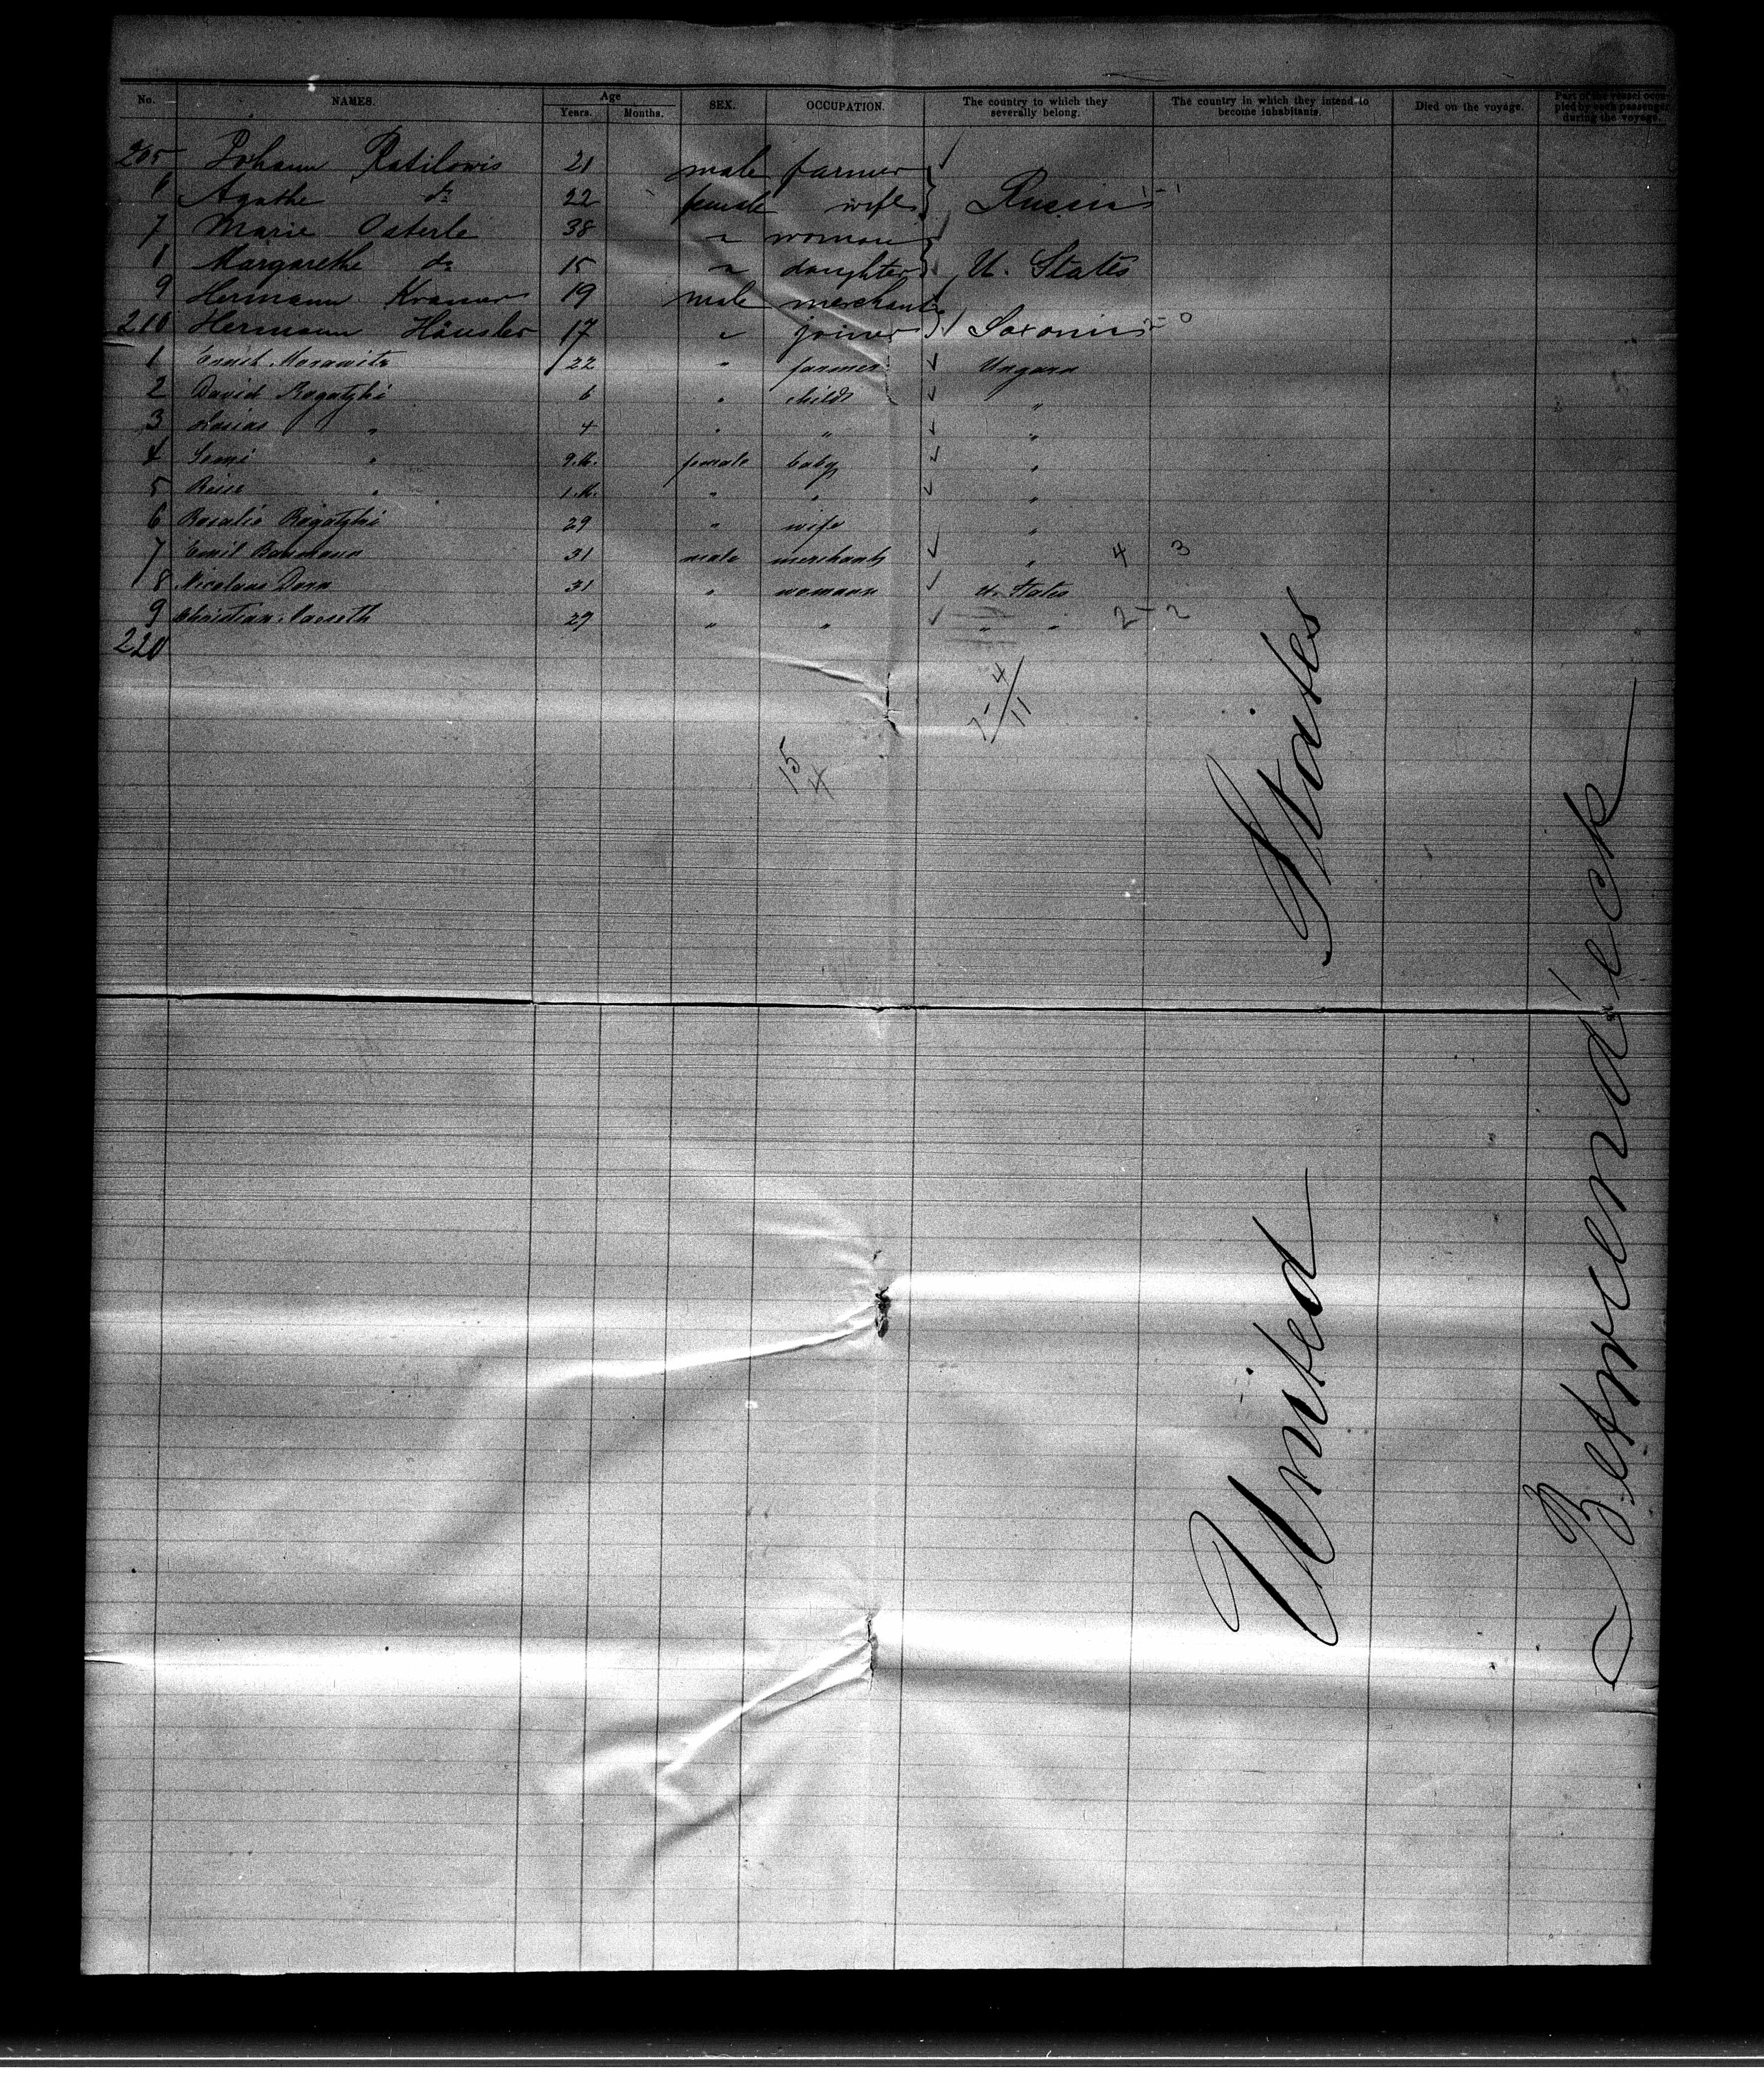 No. NAMES. Age Years. Months. SEX. OCCUPATION. The country to which they severally belong. The country in which they intend to become inhabitants. Died on the voyage. Part of the vessel occupied by each passenger during the voyage.
205 Johann Ratilowis 21 male farmer
6 Agathe do 22 female wife Russia 1-1
7 Marie Osterle 38 " woman
8 Margarethe do 15 " daughter U. States
9 Hermann Kramer 19 male merchant
210 Hermann Häusler 17 " joiner Saxonia 2-0
1 Morawitz 22 " farmer Ungarn
2 David Rogatzki 6 " child "
3 " 4 " " "
4 " 9.M. female baby "
5 " 1.M. " " "
6 Rosalie Rogatzki 29 " wife "
7 Emil Baumann 31 male merchant " 4 3
8 Nicolaus Dorn 31 " womann U. States
9 Christian 29 " " " " 2-2
220
7-4
11
15
4
United States
Betweendeck